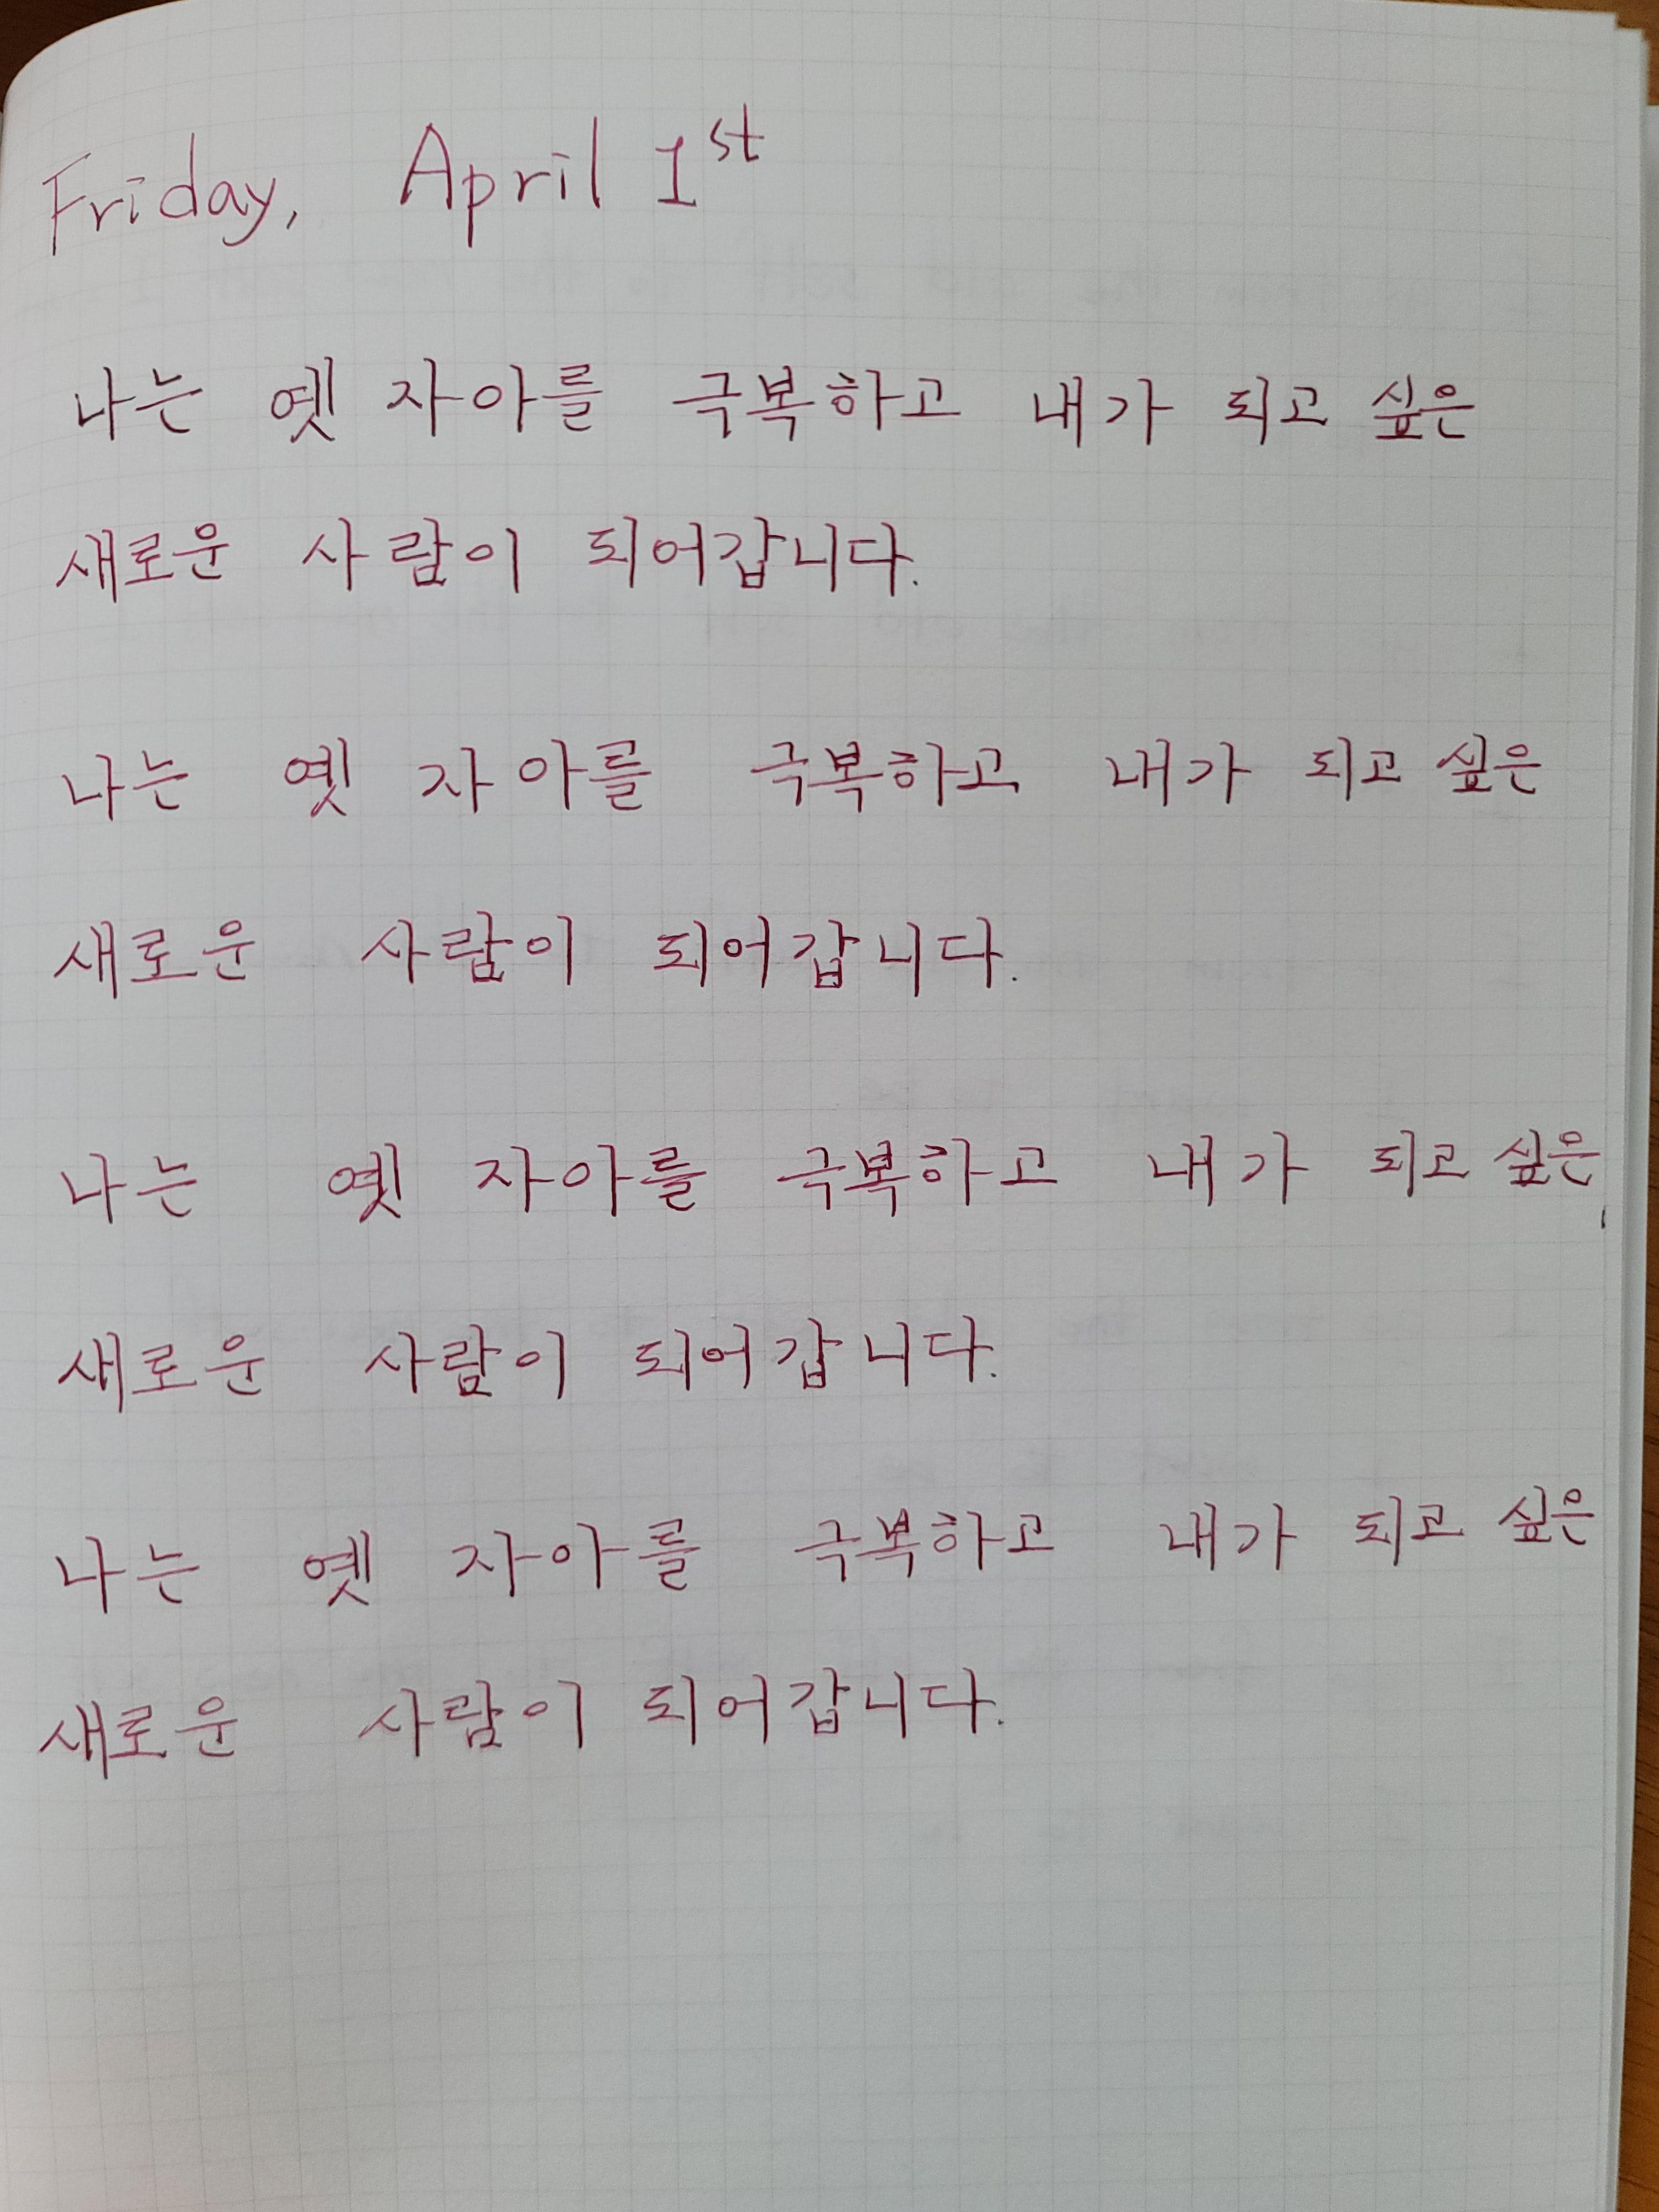 Friday, April 1st
나는 옛 자아를 극복하고 내가 되고 싶은
새로운 사람이 되어갑니다.
나는 옛 자아를 극복하고 내가 되고 싶은
새로운 사람이 되어갑니다.
나는 옛 자아를 극복하고 내가 되고 싶은
새로운 사람이 되어갑니다.
나는 옛 자아를 극복하고 내가 되고 싶은
새로운 사람이 되어갑니다.